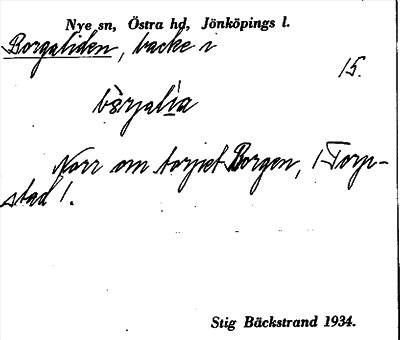 Nye sn, Östra hd, Jönköpings l.
Borgaliden, backe i
15.
bòrjalìa
Norr om torpet Borgen, 1 Torp-
stad 1.
Stig Bäckstrand 1934.